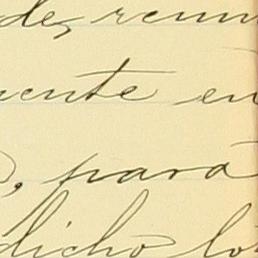 de, reun
ente en
, para
dicho lo